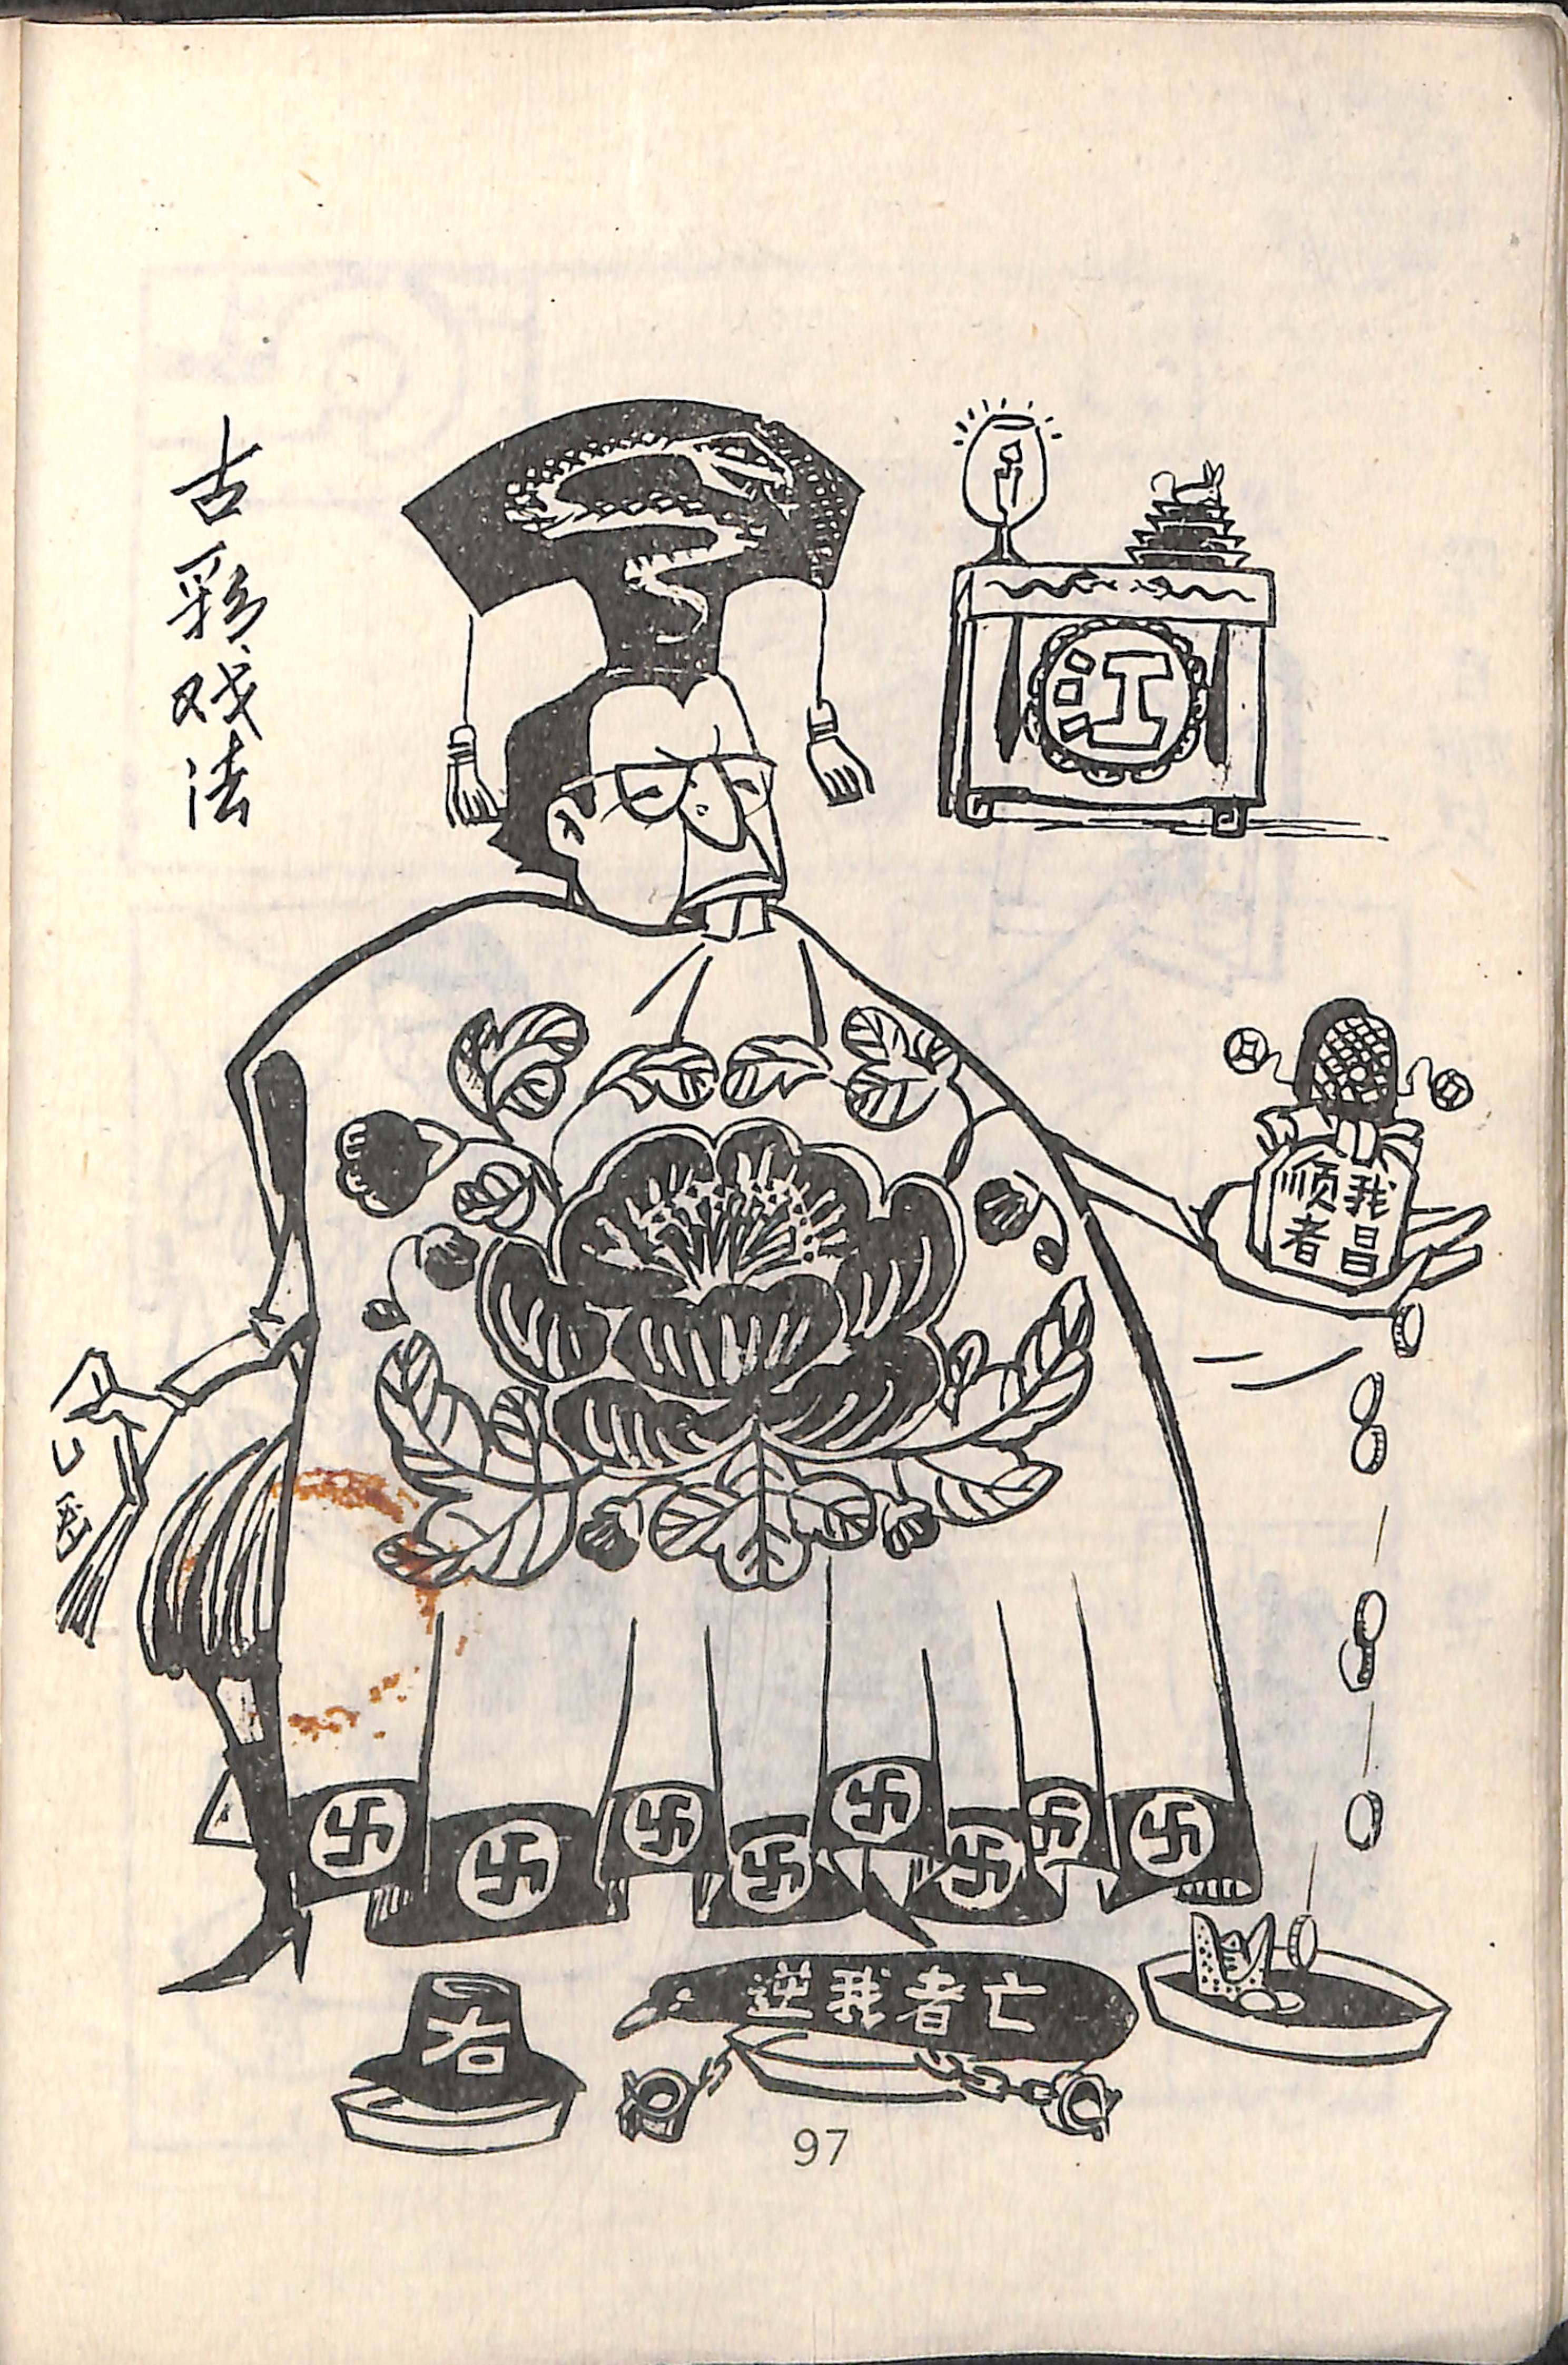 古彩戏法
江
顺我
者昌
右
逆我者亡
97